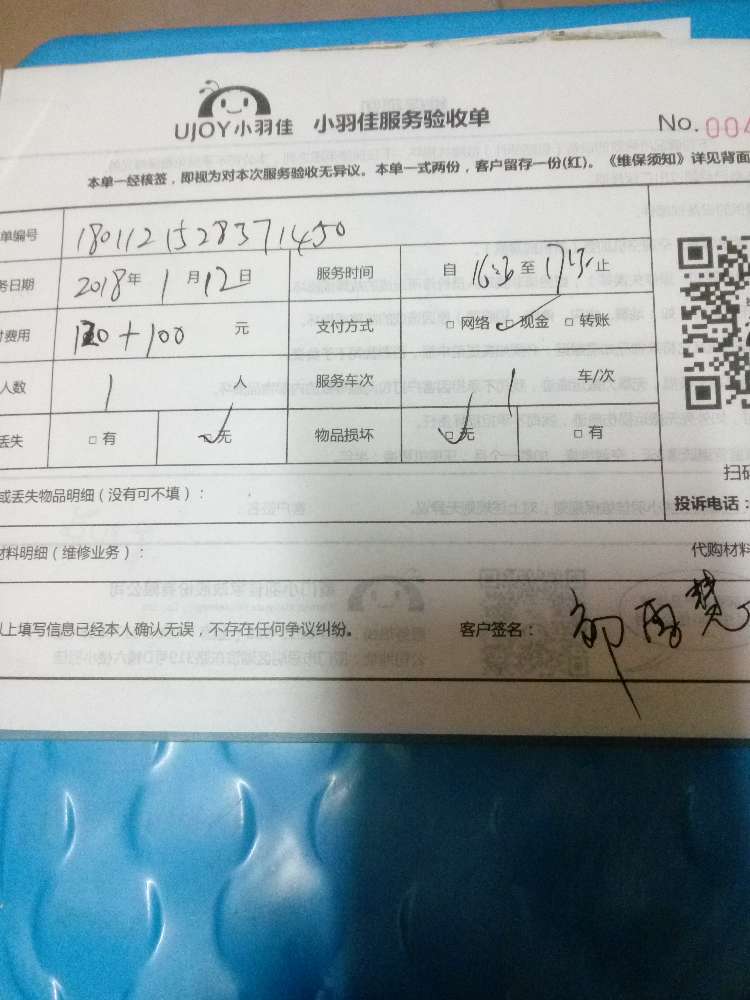 UJOY小羽佳 小羽佳服务验收单
No. 004
本单一经核签，即视为对本次服务验收无异议。本单一式两份，客户留存一份(红)。《维保须知》详见背面
单编号 1801121528371450
务日期 2018年 1月12日 服务时间 自 至 止
付费用 +100 元 支付方式 □网络 □现金 □转账
人数 1 人 服务车次 1 车/次
丢失 □有 □无 物品损坏 □无 □有
扫码
或丢失物品明细（没有可不填）：
投诉电话：
材料明细（维修业务）：
代购材料
以上填写信息已经本人确认无误，不存在任何争议纠纷。 客户签名：